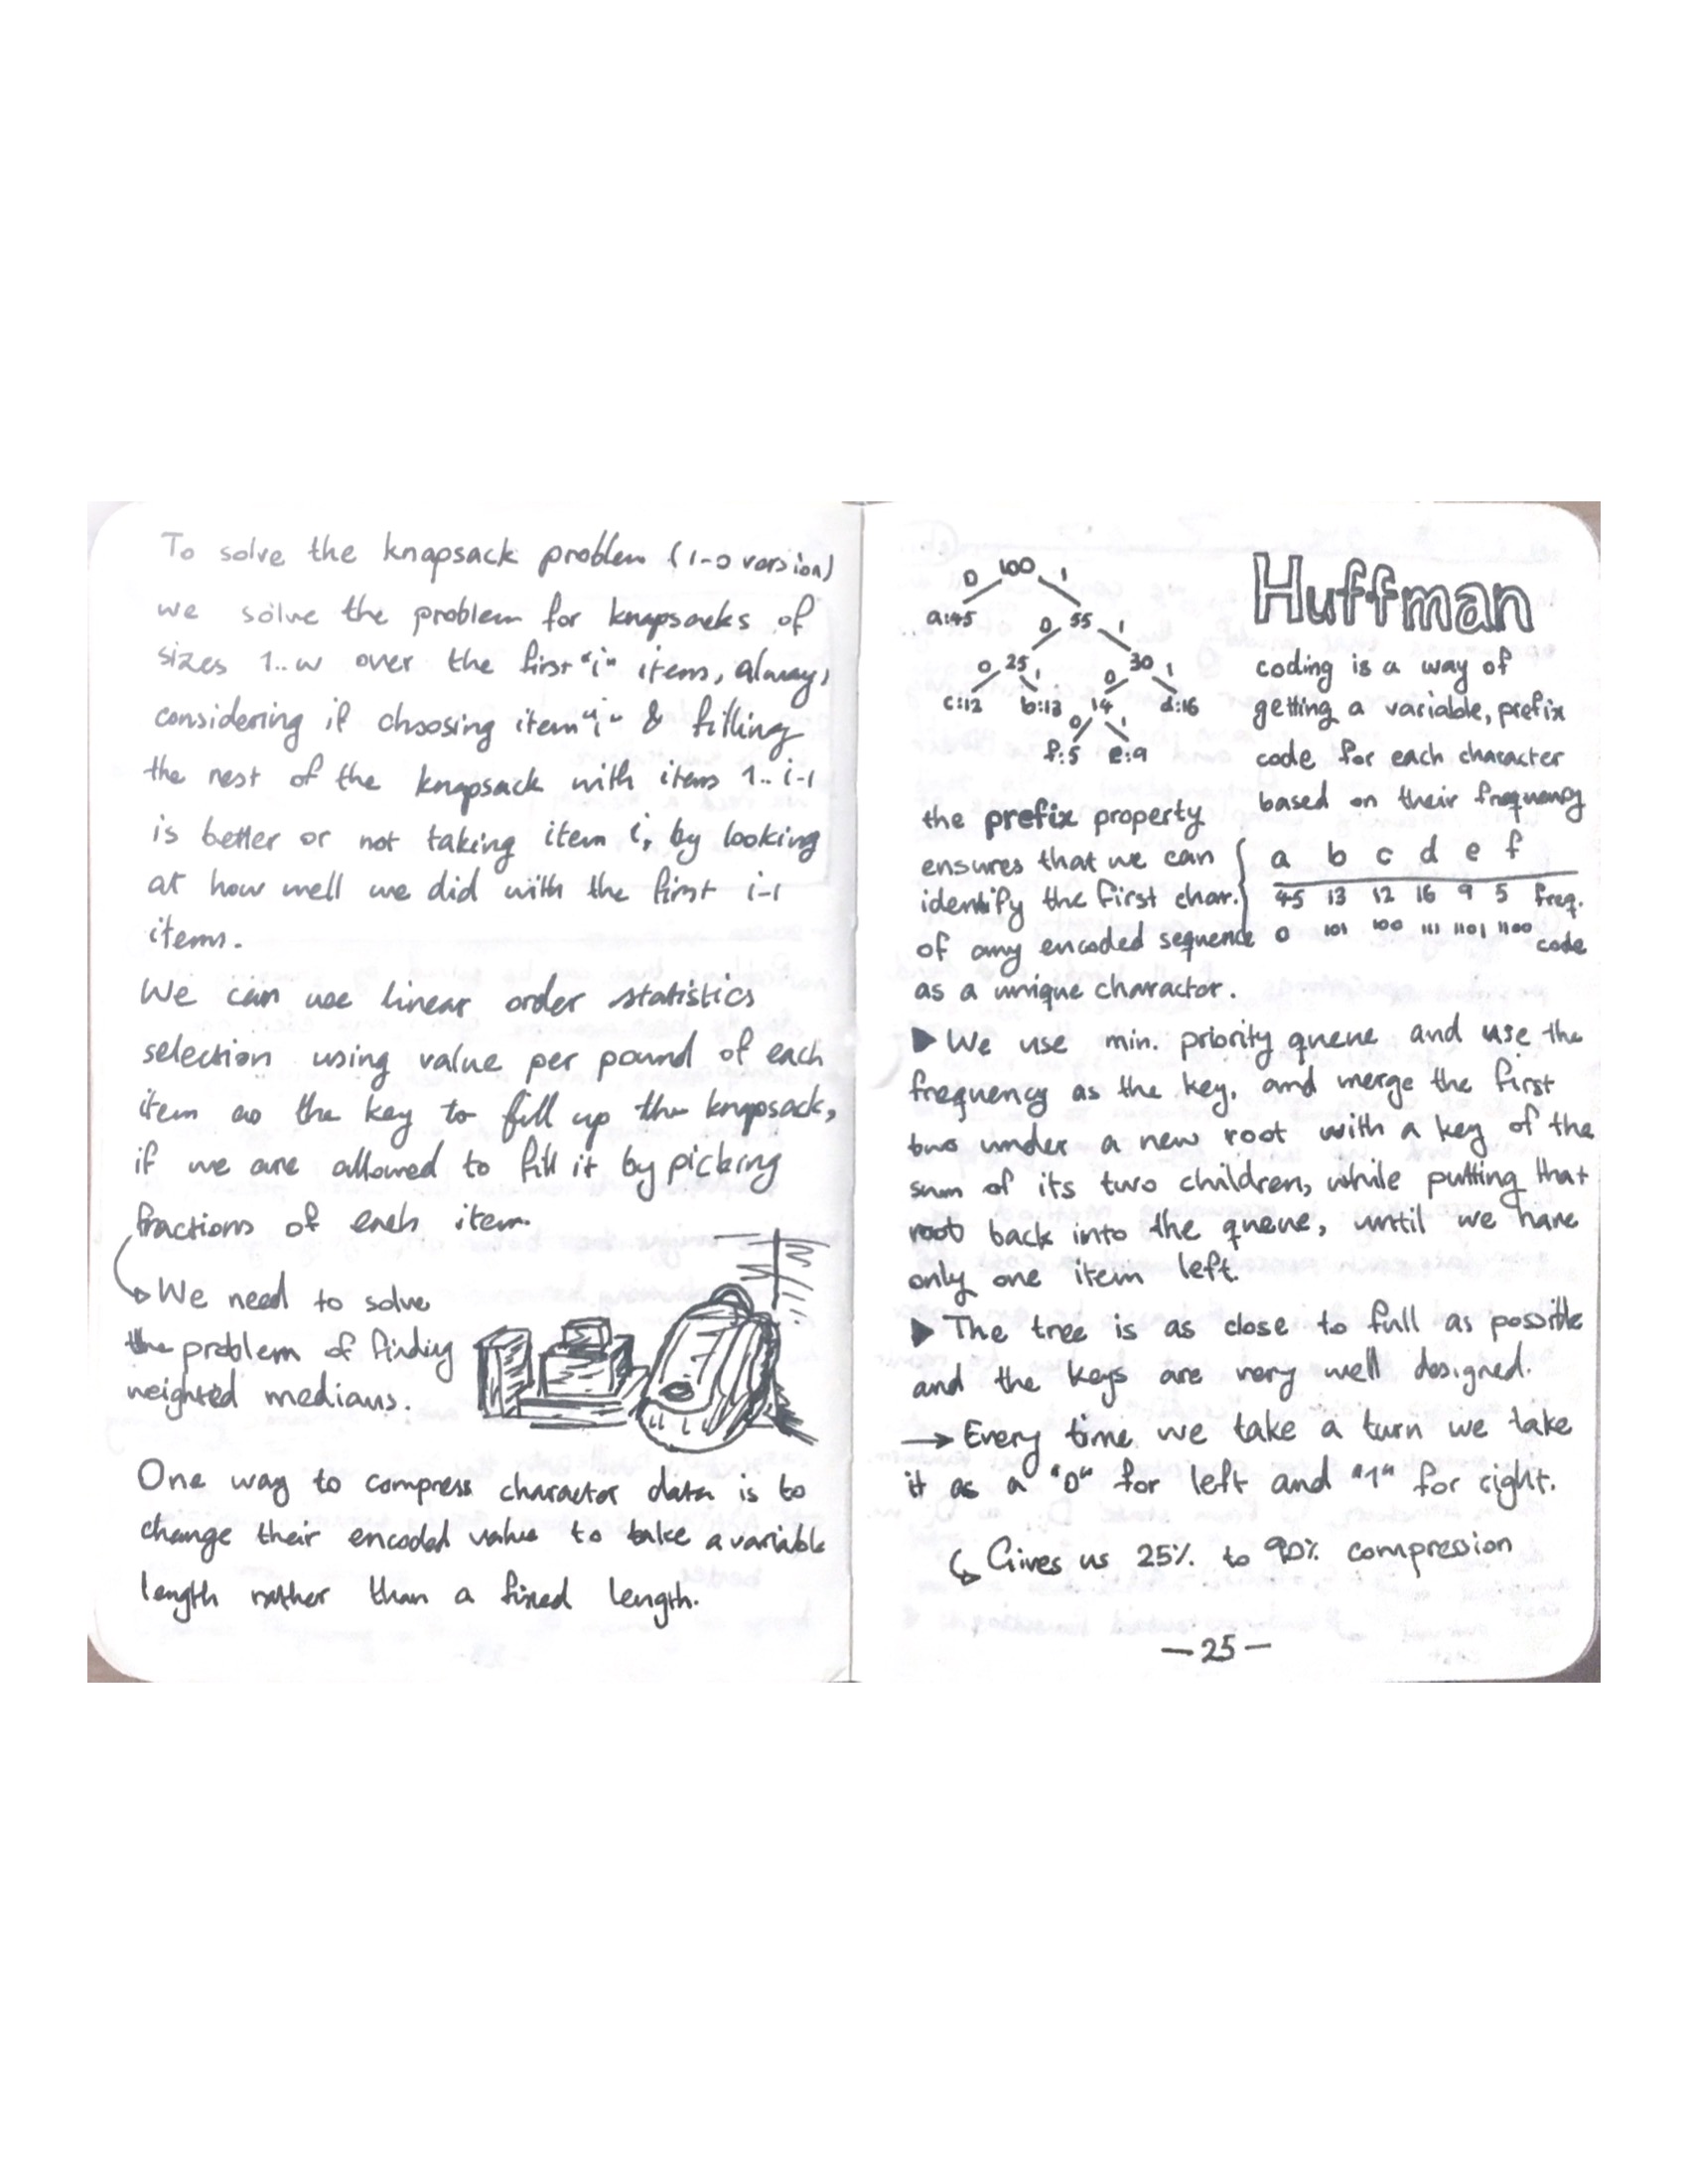 To solve the knapsack problem (1-0 version)
we solve the problem for knapsacks of
sizes 1..w over the first "i" items, always
considering if choosing item "i" & filling
the rest of the knapsack with items 1..i-1
is better or not taking item i, by looking
at how well we did with the first i-1
items.
We can use linear order statistics
selection using value per pound of each
item as the key to fill up the knapsack,
if we are allowed to fill it by picking
fractions of each item.
We need to solve
the problem of finding
weighted medians.
One way to compress character data is to
change their encoded value to take a variable
length rather than a fixed length.
0 100 1
a:45 0 55 1
0 25 1 0 30 1
c:12 b:13 14 d:16
0 1
f:5 e:9
Huffman
coding is a way of
getting a variable, prefix
code for each character
based on their frequency
the prefix property
ensures that we can
identify the first char.
of any encoded sequence
as a unique character.
a b c d e f
45 13 12 16 9 5 freq.
0 101 100 111 1101 1100 code
We use min. priority queue and use the
frequency as the key, and merge the first
two under a new root with a key of the
sum of its two children, while putting that
root back into the queue, until we have
only one item left.
The tree is as close to full as possible
and the keys are very well designed.
→ Every time we take a turn we take
it as a "0" for left and "1" for right.
Gives us 25% to 90% compression
—25—